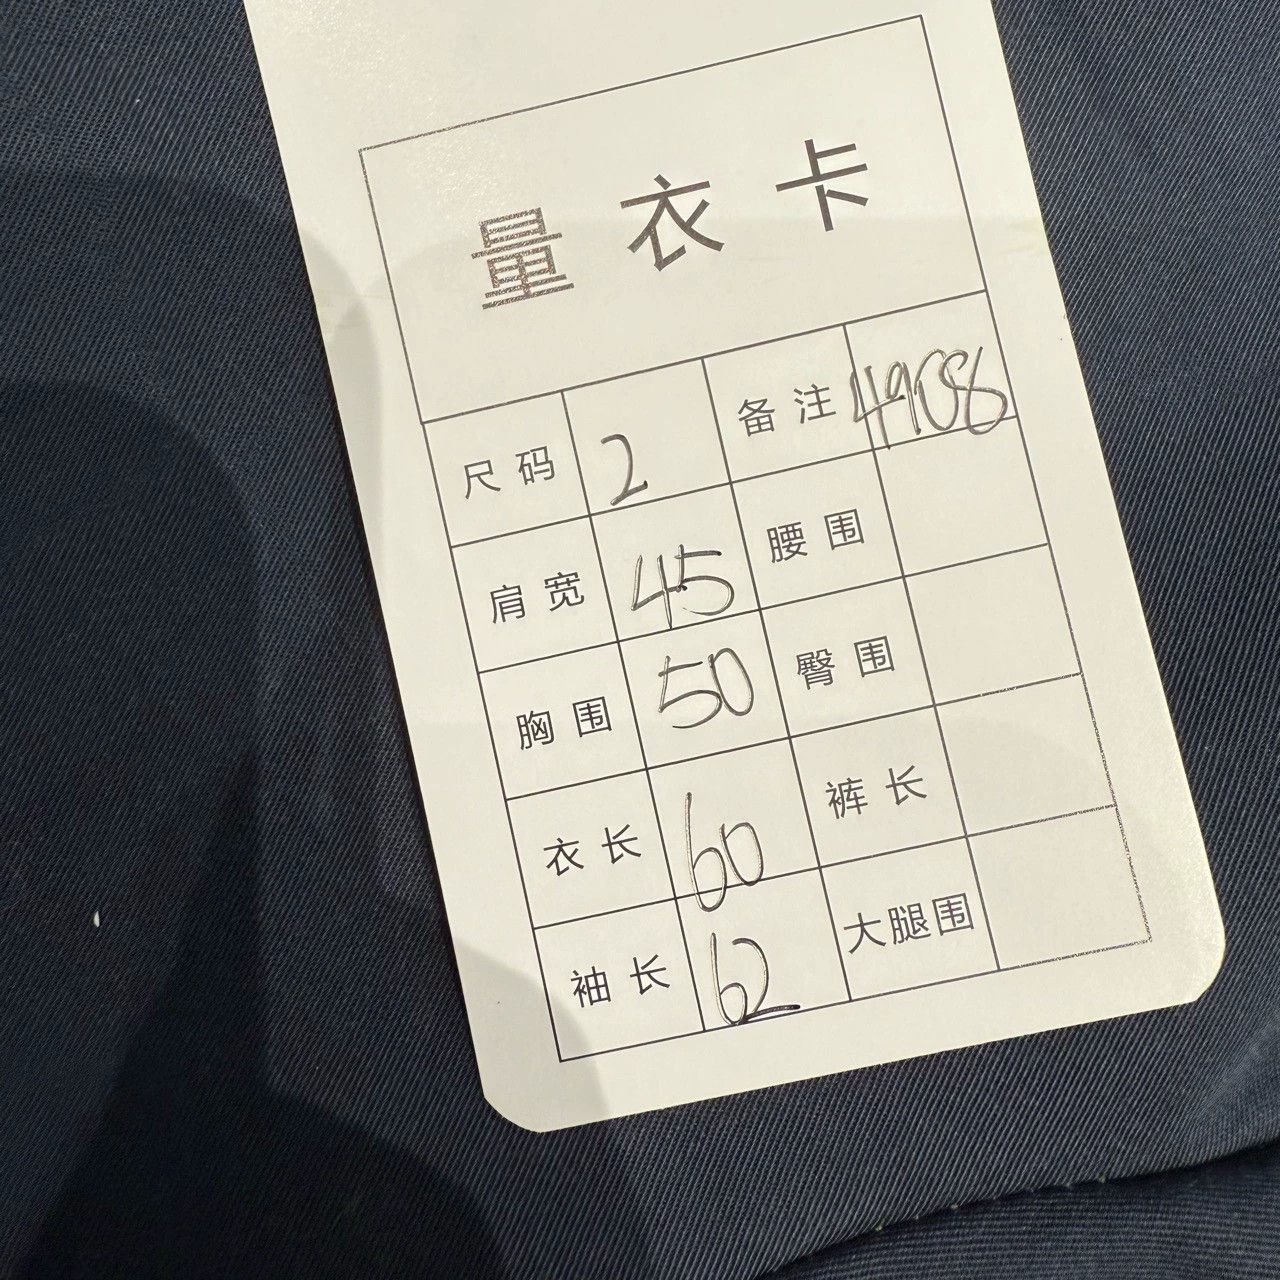 量衣卡
尺码 2 备注 4908
肩宽 45 腰围
胸围 50 臀围
衣长 60 裤长
袖长 62 大腿围